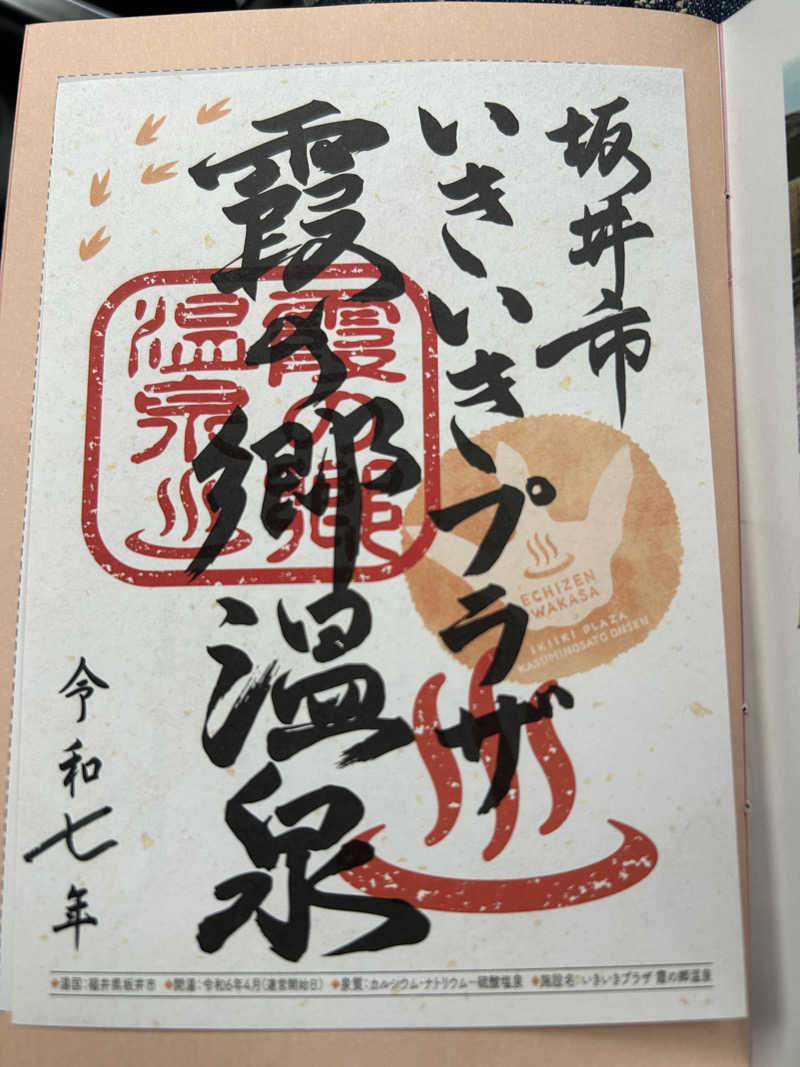 坂井市
いきいきプラザ
霞の郷温泉
霞の郷
温泉
ECHIZEN
WAKASA
IKIIKI PLAZA
KASUMINOSATO ONSEN
令和七年
◆湯国：福井県坂井市 ◆開湯：令和6年4月（運営開始日） ◆泉質：カルシウム・ナトリウムー硫酸塩泉 ◆施設名：いきいきプラザ 霞の郷温泉